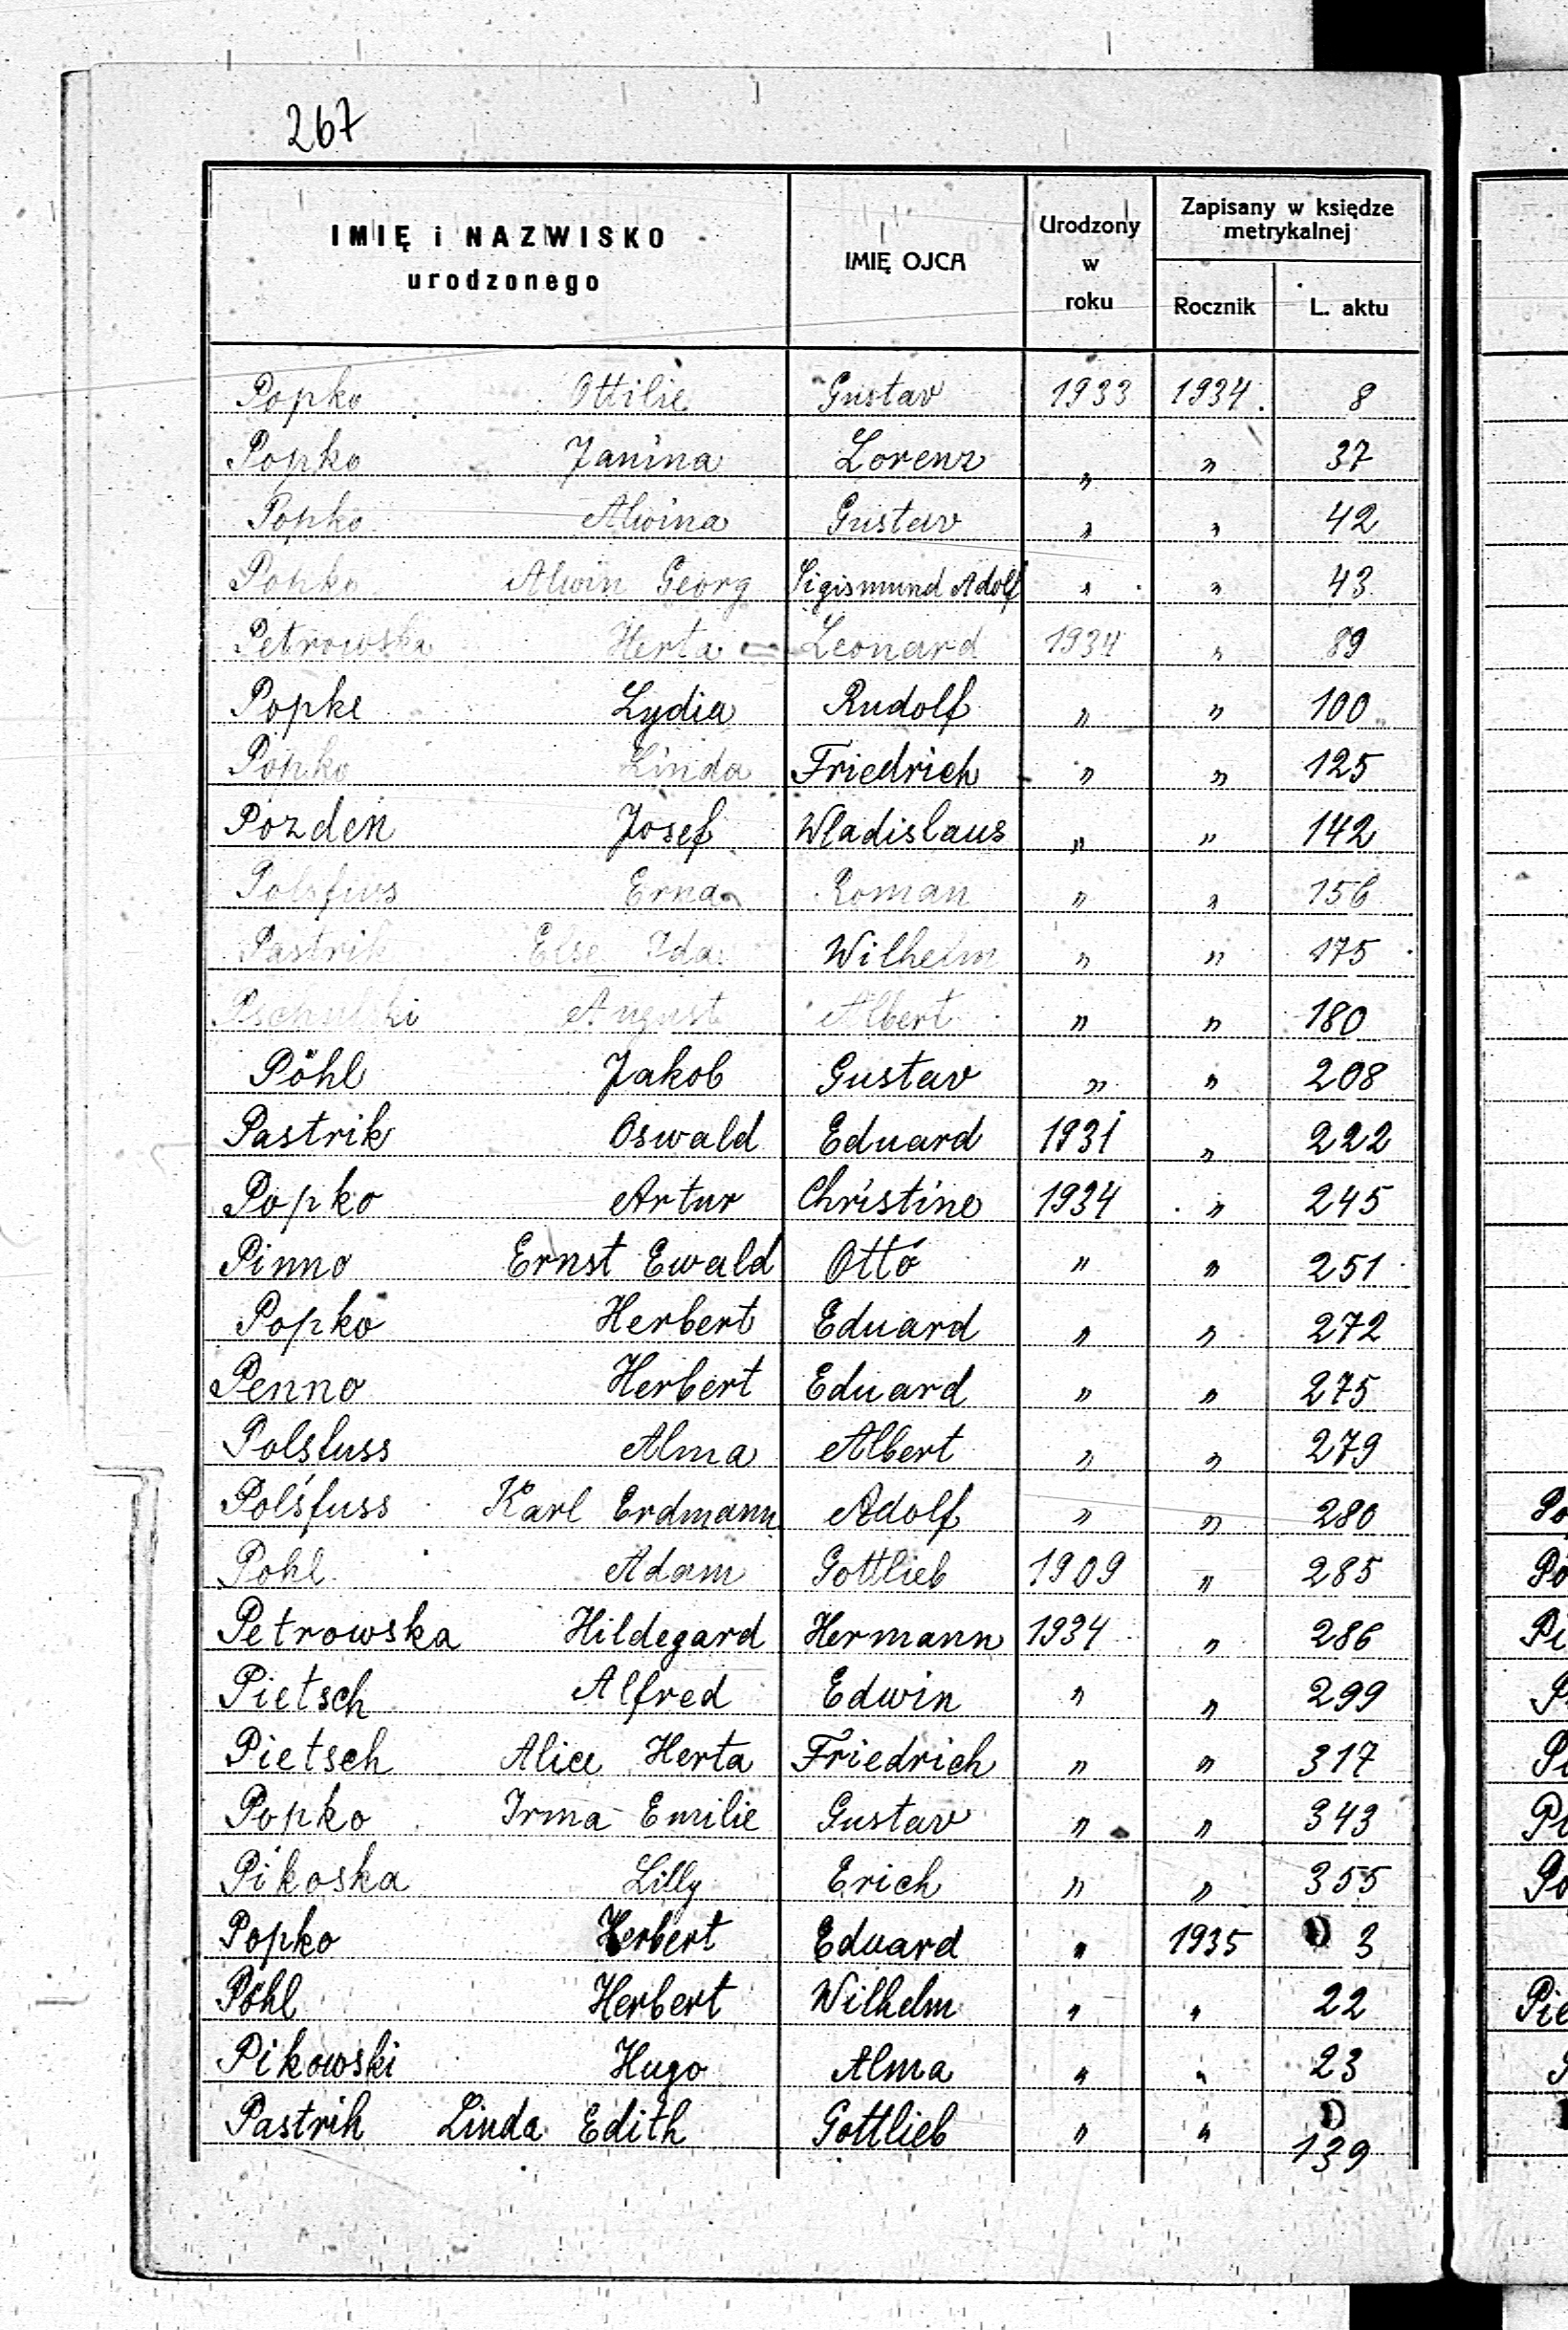 267
IMIĘ i NAZWISKO urodzonego IMIĘ OJCA Urodzony w roku Zapisany w księdze metrykalnej
Rocznik L. aktu
Popko Ottilie Gustav 1933 1934. 8
Popko Janina Lorenz " " 37
Popko Alwina Gustav " " 42
Popko Alwin Georg Sigismund Adolf " " 43
Petrowska Herta Leonard 1934 " 89
Popke Lydia Rudolf " " 100
Popko Linda Friedrich " " 125
Pozden Josef Wladislaus " " 142
Polsfuss Erna Roman " " 156
Pastrik Else Ida Wilhelm " " 175
August Albert " " 180
Pöhl Jakob Gustav " " 208
Pastrik Oswald Eduard 1931 " 222
Popko Artur Christine 1934 " 245
Pinno Ernst Ewald Otto " " 251
Popko Herbert Eduard " " 272
Penno Herbert Eduard " " 275
Polsfuss Alma Albert " " 279
Polsfuss Karl Erdmann Adolf " " 280
Pohl Adam Gottlieb 1909 " 285
Petrowska Hildegard Hermann 1934 " 286
Pietsch Alfred Edwin " " 299
Pietsch Alice Herta Friedrich " " 317
Popko Irma Emilie Gustav " " 343
Pikoska Lilly Erich " " 355
Popko Herbert Eduard " 1935 3
Pöhl Herbert Wilhelm " " 22
Pikowski Hugo Alma " " 23
Pastrik Linda Edith Gottlieb " " 139